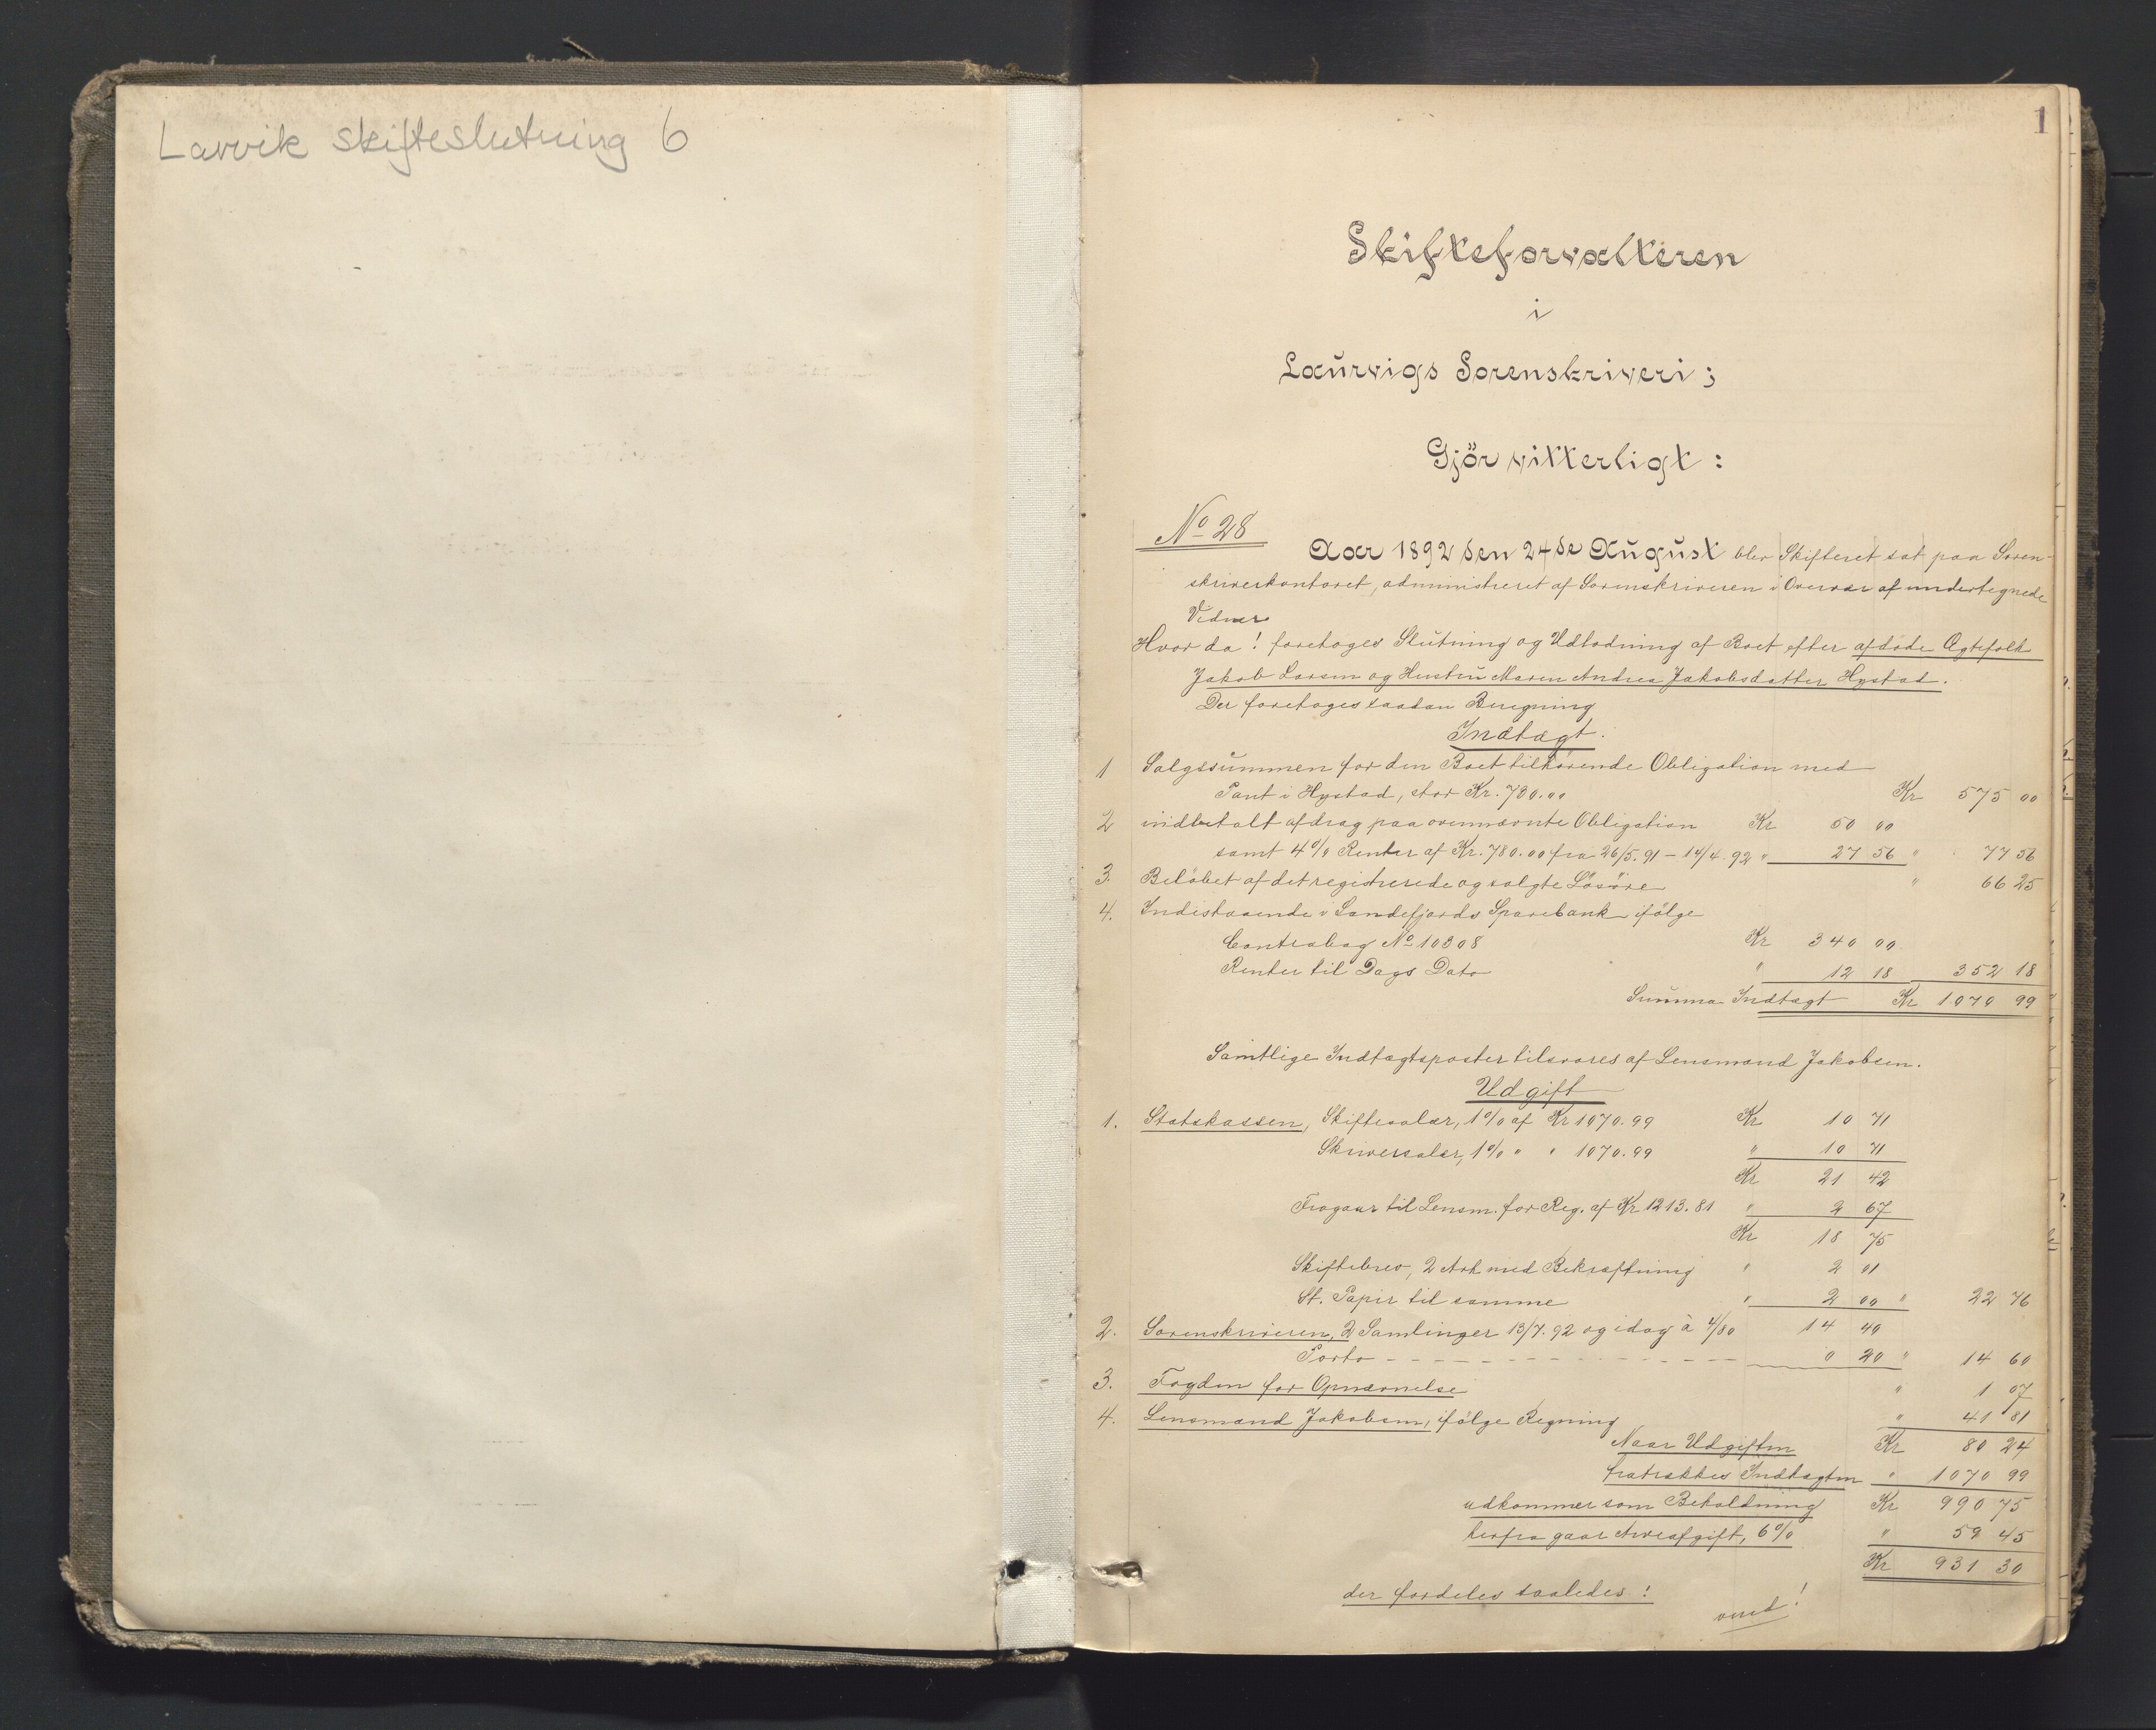 Larvik skifteslutning 6
1
Skifteforvalteren
i
Laurvigs Sorenskriveri;
Gjör vitterligt:
No 28
Aar 1892 den 24de August blev Skifteret sat paa Soren-
skriverkontoret, administreret af Sorenskriveren i Overvær af undertegnede
Vidner
Hvor da! foretoges Slutning og Udlodning af Boet efter afdöde Ægtefolk
Jakob Larsen og Hustru Maren Andrea Jakobsdatter Hystad.
Der foretoges saadan Beregning
Indtægt.
1 Salgssummen for den Boet tilhörende Obligation med
Pant i Hystad, stor Kr. 780.00 Kr 575 00
2 indbetalt afdrag paa ovennævnte Obligation Kr 50 00
samt 4% Renter af Kr. 780.00 fra 26/5.91 - 14/4.92 " 27 56 " 77 56
3. Belöbet af det registrerede og solgte Lösöre " 66 25
4. Indestaaende i Sandefjords Sparebank ifölge
Contrabog No 10308 Kr 340 00
Renter til Dags Dato " 12 18 352 18
Summa Indtægt Kr 1070 99
Samtlige Indtægtsposter tilsvares af Lensmand Jakobsen.
Udgift
1. Statskassen, Skiftesalær, 1% af Kr 1070.99 Kr 10 71
Skriversalær, 1% " " 1070.99 " 10 71
Kr 21 42
Fragaar til Lensm. for Reg. af Kr 1213.81 " 2 67
Kr 18 75
Skiftebrev, 2 Ark med Bekræftning " 2 01
St. Papir til samme " 2 00 " 22 76
2. Sorenskriveren, 2 Samlinger 13/7.92 og idag à 4/80 14 40
Porto - - - - - - - - - - 0 20 " 14 60
3. Fogden for Opnævnelse " 1 07
4. Lensmand Jakobsen, ifölge Regning " 41 81
Naar Udgiften Kr 80 24
fratrækkes Indtægten " 1070 99
udkommer som Beholdning Kr 990 75
herfra gaar Arveafgift, 6% " 59 45
Kr 931 30
der fordeles saaledes!
vend!